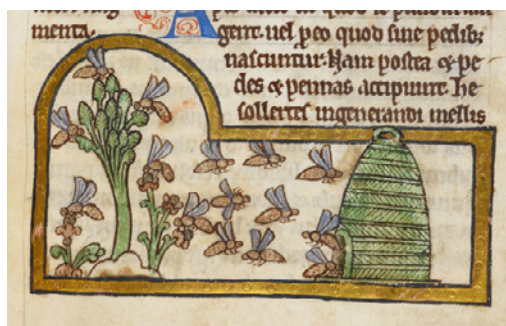 menta. Agent. uel ꝓeo quod sine pedibꝫ
nascuntur. Nam postea ⁊ pe
des ⁊ pennas accipiunt. he
sollertes ingenerandi mellis